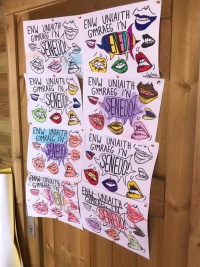 ENW UNIAITH
GYMRAEG I'N
SENEDD!
ENW UNIAITH
GYMRAEG I'N
SENEDD!
ENW UNIAITH
GYMRAEG I'N
SENEDD!
ENW UNIAITH
GYMRAEG I'N
SENEDD!
ENW UNIAITH
GYMRAEG I'N
SENEDD!
ENW UNIAITH
GYMRAEG I'N
SENEDD!
ENW UNIAITH
GYMRAEG I'N
ENW UNIAITH
GYMRAEG I'N
SENEDD!